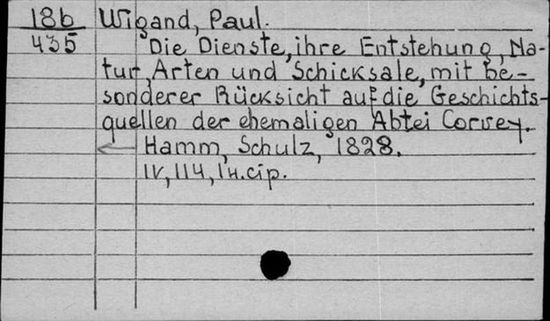 18b Wigand, Paul.
435 Die Dienste, ihre Entstehung, Na-
tur, Arten und Schicksale, mit be-
sonderer Rücksicht auf die Geschichts-
quellen der ehemaligen Abtei Corvey.
Hamm, Schulz, 1828.
IV, 114, 1 н.стр.